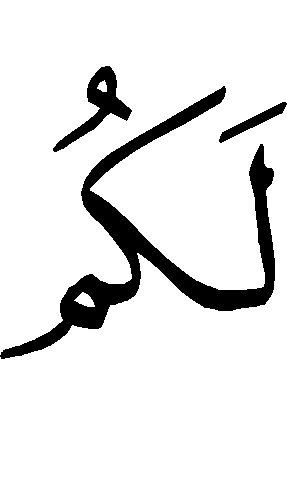 لَكُم